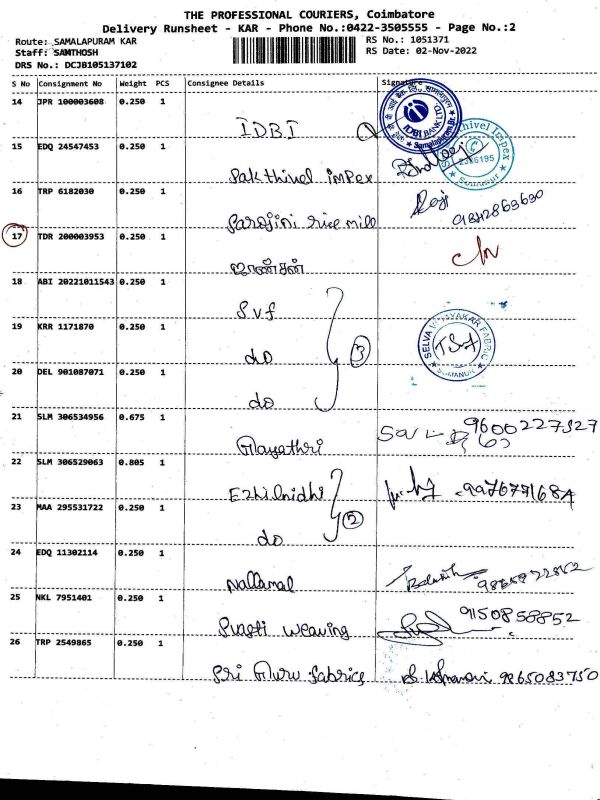 THE PROFESSIONAL COURIERS, Coimbatore
Delivery Runsheet - KAR - Phone No.:0422-3505555 - Page No.:2
Route: SAMALAPURAM KAR RS No.: 1051371
Staff: SAMTHOSH RS Date: 02-Nov-2022
DRS No.: DCJB105137102
S No Consignment No Weight PCS Consignee Details Signature
14 JPR 100003608 0.250 1 IDBI
IDBI BANK LTD
15 EDQ 24547453 0.250 1 Sakthivel impex
Sakthivel Impex
16 TRP 6182030 0.250 1 Sarojini rice mill Roji
17 TDR 200003953 0.250 1 ஜான்சன்
18 ABI 20221011543 0.250 1 SVF
19 KRR 1171870 0.250 1 do 3
SELVA VINAYAKAR FABRIC
SOMANUR
20 DEL 901087071 0.250 1 do
21 SLM 306534956 0.675 1 Gayathri 9600227327
22 SLM 306529063 0.805 1 Ezhilnidhi
23 MAA 295531722 0.250 1 do 2
24 EDQ 11302114 0.250 1 Nallamal
25 NKL 7951401 0.250 1 Svasti weaving 9150858852
26 TRP 2549865 0.250 1 Sri Guru fabrics 9865083750